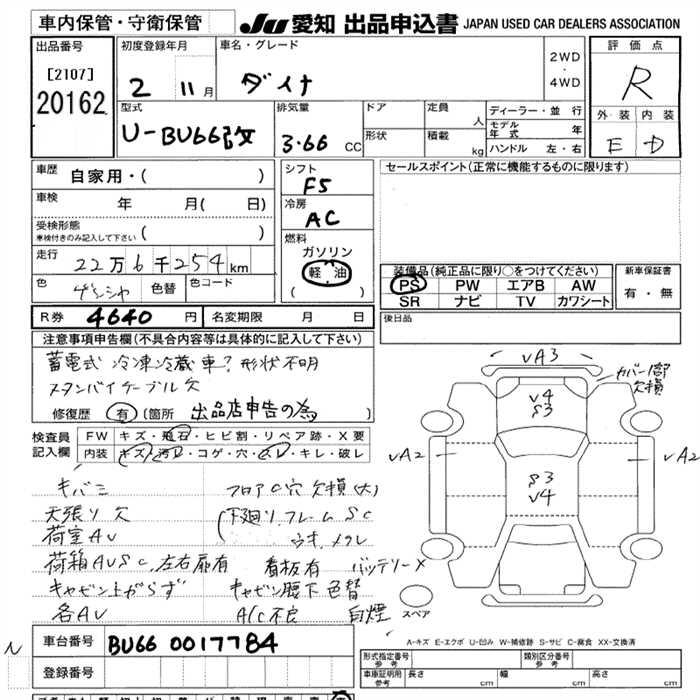 車内保管・守衛保管
JU 愛知 出品申込書 JAPAN USED CAR DEALERS ASSOCIATION
出品番号
[2107]
20162
初度登録年月
2 11月
車名・グレード
ダイナ
2WD
・
4WD
評価点
R
型式
U-BU66改
排気量
3.66 CC
ドア
定員
人
形状
積載
kg
ディーラー・並行
モデル年式 年
ハンドル 左・右
外装 内装
E D
車歴
自家用・( )
車検 年 月( 日)
受検形態
車検付きのみ記入して下さい ( )
走行
22万6千254km
色
色替
色コード
シフト
F5
冷房
AC
燃料
ガソリン
軽油
( )
セールスポイント(正常に機能するものに限ります)
装備品(純正品に限り○をつけてください)
PS PW エアB AW
SR ナビ TV カワシート
新車保証書
有・無
R券 4640 円 名変期限 月 日
後日品
注意事項申告欄(不具合内容等は具体的に記入して下さい)
蓄電式 冷凍冷蔵車? 形状不明
スタンバイケーブル欠
修復歴 有(箇所 出品店申告の為 )
検査員
記入欄
FW キズ・飛石・ヒビ割・リペア跡・X要
内装 キズ・汚レ・コゲ・穴・スレ・キレ・破レ
キバミ フロアC穴 欠損(大)
天張り欠 (下廻り,フレームSC
荷室AU ウキ,メクレ
荷箱AUSC,左右扉有 看板有 バッテリーX
キャビン上がらず キャビン腰下色替
各AU A/C不良 白煙
VA3
カバー1部
欠損
V4
S3
VA2
VA2
S3
V4
スペア
A-キズ E-エクボ U-凹み W-補修跡 S-サビ C-腐食 XX-交換済
N
車台番号 BU66 0017784
登録番号
形式指定番号
参考
類別区分番号
参考
車庫証明用
参考
長さ cm 幅 cm 高さ cm